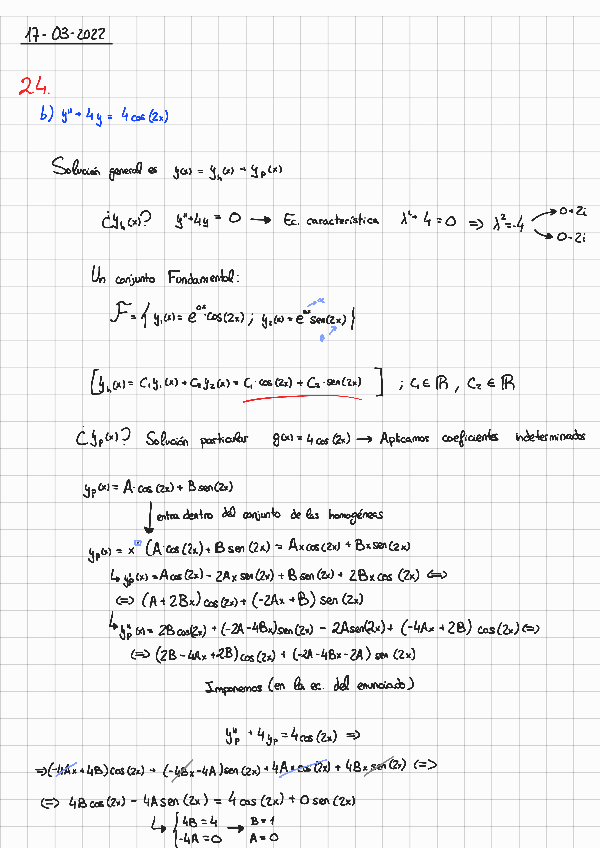 17-03-2022
24.
b) y'' + 4y = 4cos(2x)
Solución general es y(x) = y_h(x) + y_p(x)
¿y_h(x)? y''+4y = 0 → Ec. característica λ²+4=0 ⇒ λ²=-4
0+2i
0-2i
Un conjunto Fundamental:
F = { y₁(x) = e^{0x}·cos(2x) ; y₂(x) = e^{0x} sen(2x) }
[y_h(x) = C₁y₁(x) + C₂y₂(x) = C₁·cos(2x) + C₂·sen(2x)] ; C₁∈ℝ, C₂∈ℝ
¿y_p(x)? Solución particular g(x) = 4cos(2x) → Aplicamos coeficientes indeterminados
y_p(x) = A·cos(2x) + B sen(2x)
↓ entra dentro del conjunto de las homogéneas
y_p(x) = x (A·cos(2x) + B sen(2x) = Axcos(2x) + Bxsen(2x)
↳ y'_p(x) = Acos(2x) - 2Ax sen(2x) + B sen(2x) + 2Bx cos(2x) ⇔
⇔ (A+2Bx)cos(2x) + (-2Ax+B) sen(2x)
↳ y''_p(x) = 2Bcos(2x) + (-2A-4Bx)sen(2x) - 2Asen(2x) + (-4Ax+2B) cos(2x) ⇔
⇔ (2B-4Ax+2B)cos(2x) + (-2A-4Bx-2A) sen(2x)
Imponemos (en la ec. del enunciado)
y''_p + 4y_p = 4cos(2x) ⇒
⇒(-4Ax+4B)cos(2x) + (-4Bx-4A)sen(2x) + 4Axcos(2x) + 4Bxsen(2x) ⇔
⇔ 4Bcos(2x) - 4Asen(2x) = 4cos(2x) + 0sen(2x)
↳ { 4B=4 → B=1
-4A=0 A=0